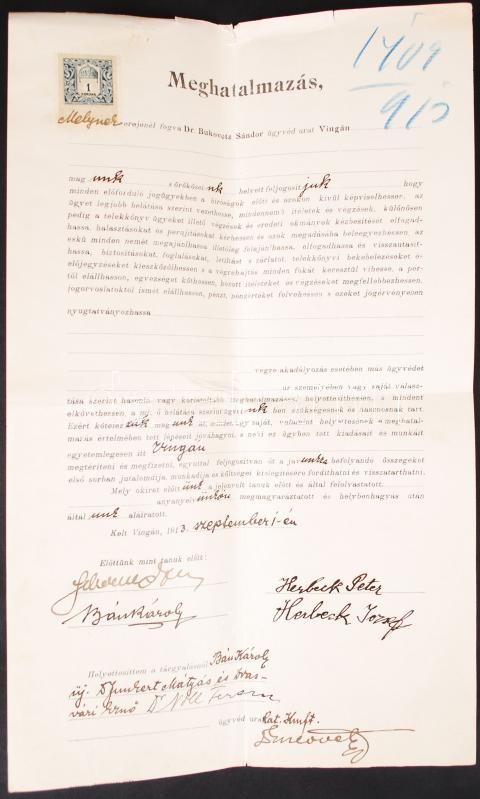 1409
913
1
Meghatalmazás,
Melynek erejénél fogva Dr Bukovetz Sándor ügyvéd urat Vingán
mag unk s örökösei nk helyett feljogosít juk hogy
minden előforduló jogügyekben a bíróságok előtt és azokon kívül képviselhessen, az
ügyet legjobb belátása szerint vezethesse, mindennemű ítéletek és végzések, különösen
pedig a telekkönyv ügyeket illető végzések és eredeti okmányok kézbesítését elfogad-
hassa, halasztásokat és perujításokat kérhessen és azok megadásába beleegyezhessen, az
eskü minden nemét megajánlhassa illetőleg felajánlhassa, elfogadhassa és visszautasít-
hassa, biztosításokat, foglalásokat, letiltást s zárlatot, telekkönyvi bekebelezéseket é-
előjegyzéseket kieszközölhessen s a végrehajtás minden fokát keresztül vihesse, a per-
től elállhasson, egyezséget köthessen, hozott ítéleteket és végzéseket megfellebbezhessen,
jogorvoslatoktól ismét elállhessen, pénzt, pénzértéket felvehessen s azokat jogérvényesen
nyugtatványozhassa
végre akadályozás esetében más ügyvédet
úr személyében vagy saját válasz-
tása szerint hasonló vagy korlátoltabb meghatalmazással helyettesíthessen, s mindent
elkövethessen, a mit ő belátása szerint ügyü nk ben szükségesnek és hasznosnak tart.
Ezért kötelez zük mag unkat, mindezt úgy saját, valamint helyettesének a meghatal-
mazás értelmében tett lépéseit jóváhagyni, s neki ez ügyben tett kiadásait és munkáit
egyetemlegesen itt Vingán
megtéríteni és megfizetni, egyúttal feljogosítván őt a javunkra befolyandó összegeket
első sorban jutalomdíja, munkadíja és költségei kielégítésére fordíthatni és visszatarthatni.
Mely okirat előtt ünk a jelenvolt tanuk előtt és által felolvastatott,
anyanyelv ünkön megmagyaráztatott és helybenhagyás után
által unk aláíratott.
Kelt Vingán, 1913. szeptember 1-én
Előttünk mint tanuk előtt:
Herbeck Péter
Bán Károly
Herbeck József
Helyettesítem a tárgyalásnál Bán Károly
új. D Junkert Mátyás és Vas-
vári Ernő Dr Noll
ügyvéd urat